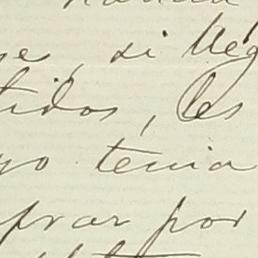 se, si lleg
tidos, les
yo tenia
prar por